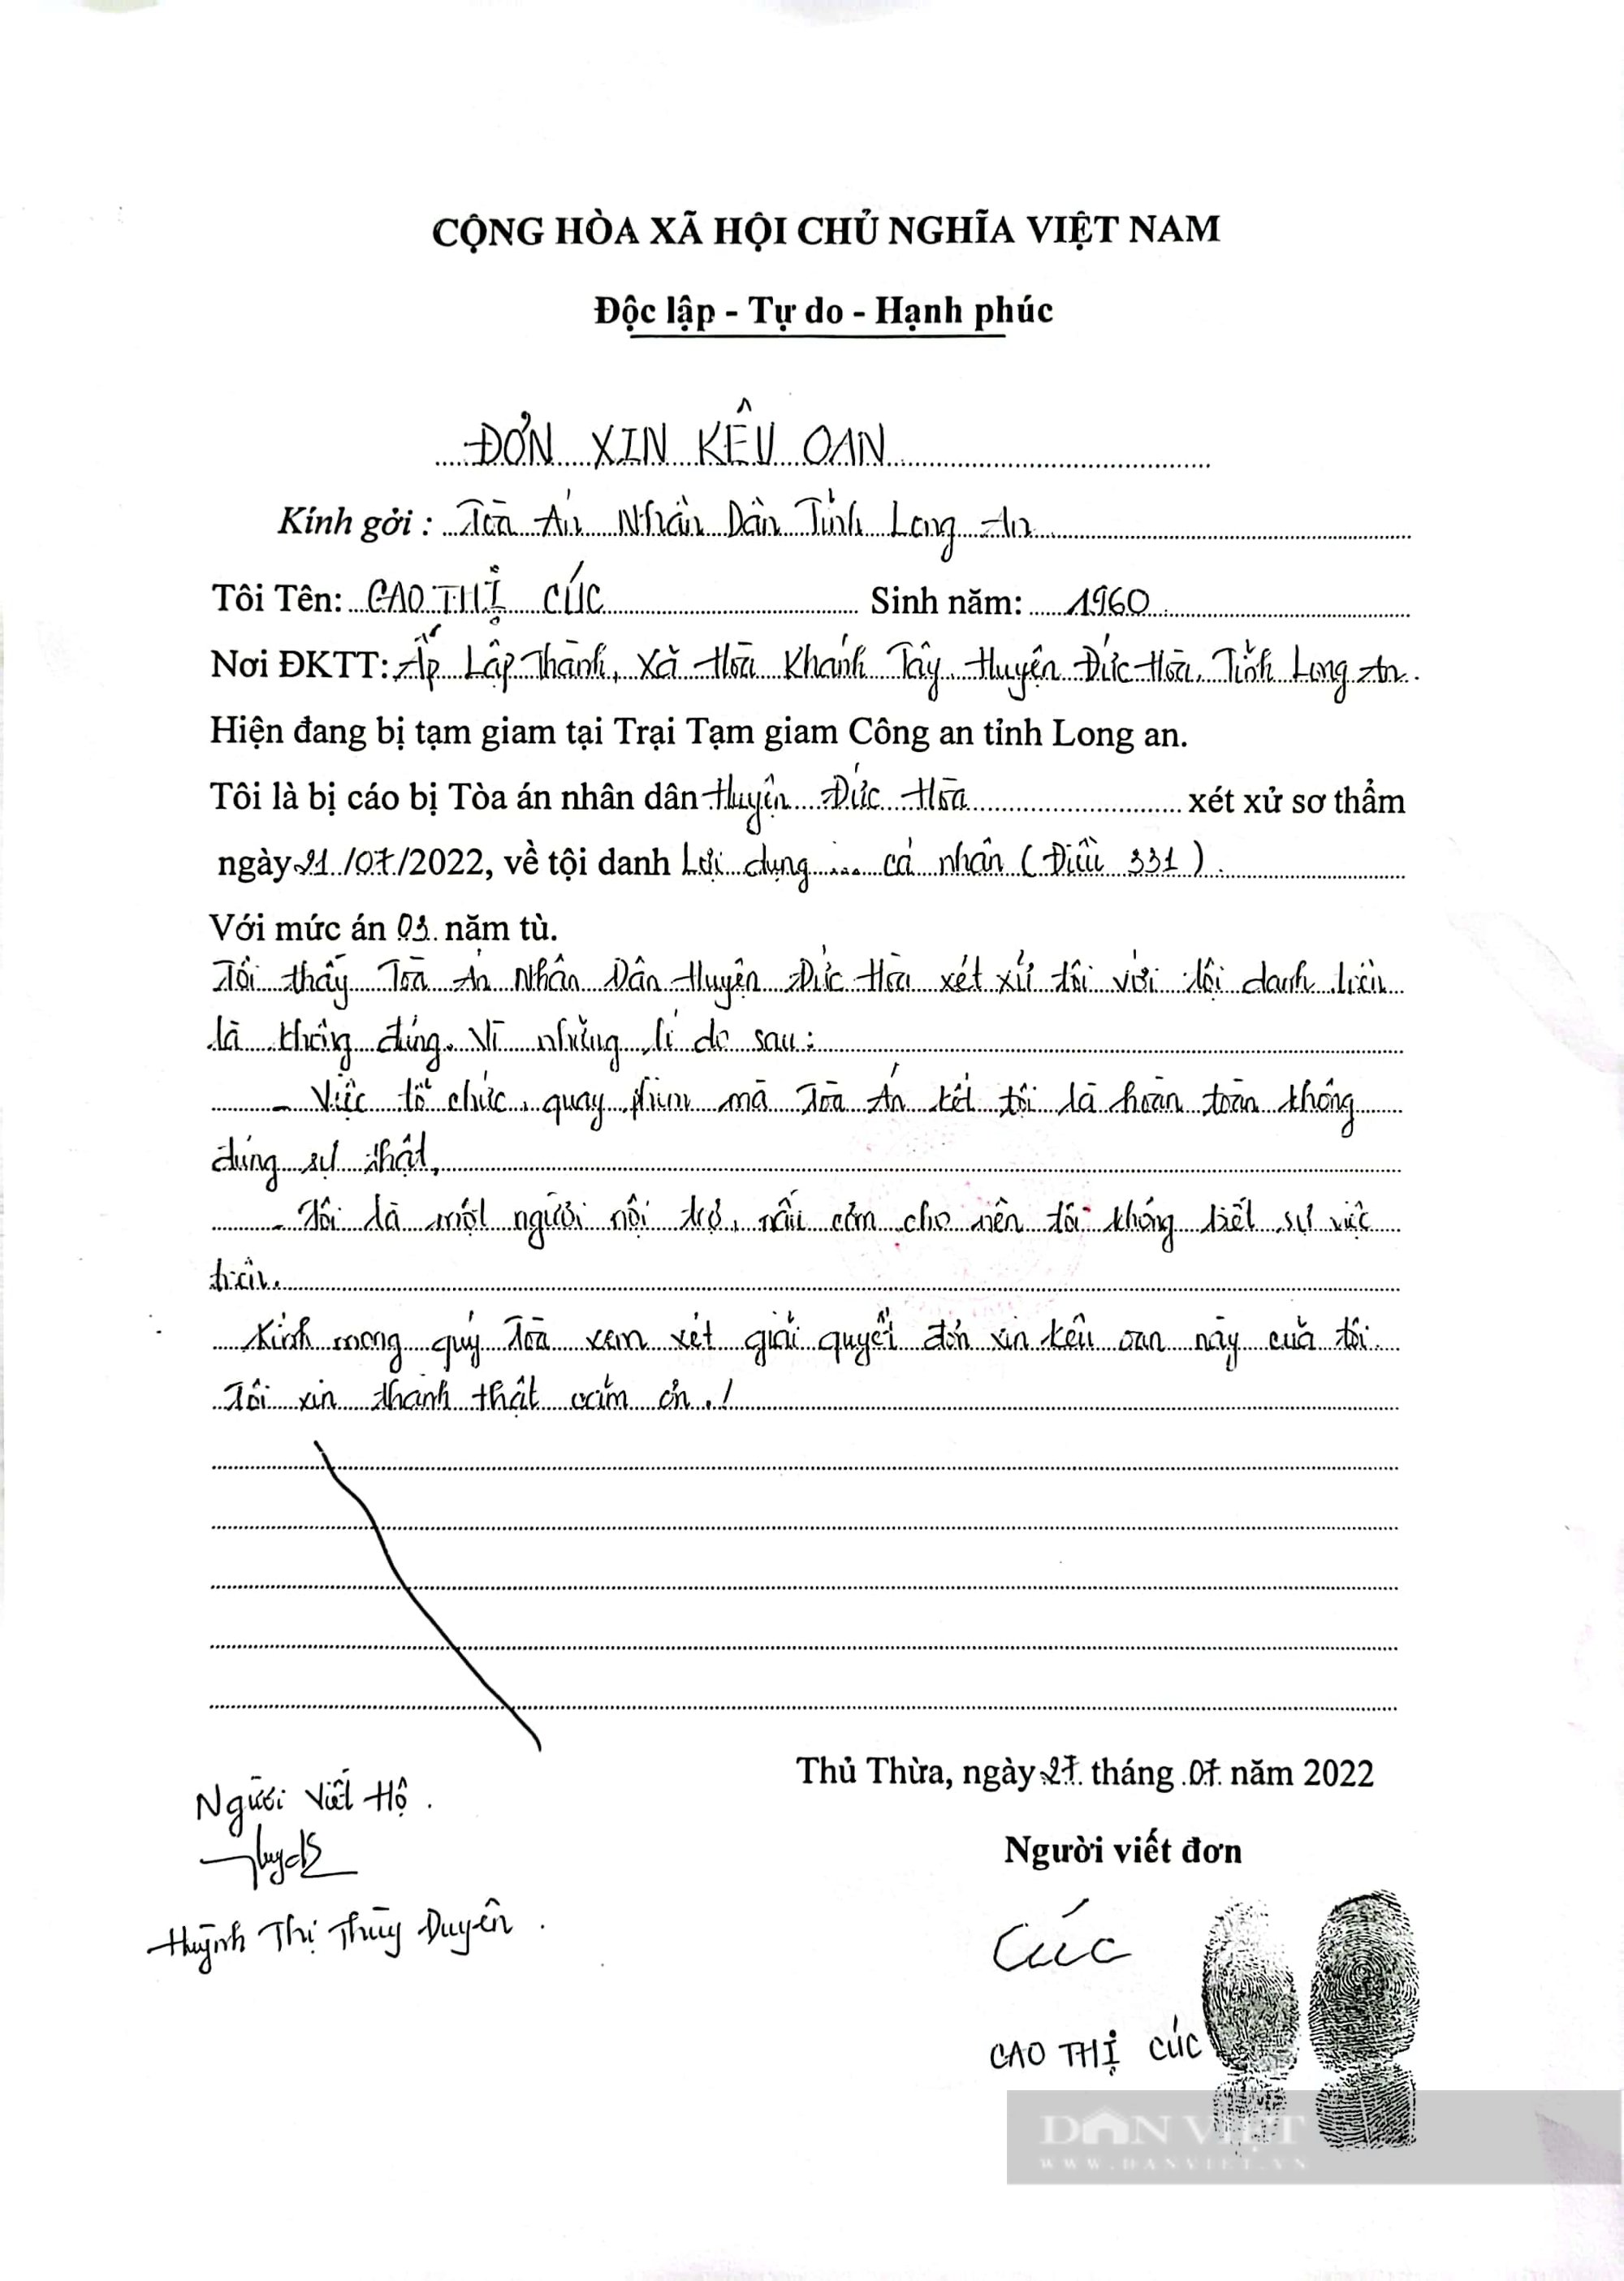 CỘNG HÒA XÃ HỘI CHỦ NGHĨA VIỆT NAM
Độc lập - Tự do - Hạnh phúc
ĐƠN XIN KÊU OAN
Kính gởi : Tòa Án Nhân Dân Tỉnh Long An
Tôi Tên: CAO THỊ CÚC Sinh năm: 1960
Nơi ĐKTT: Ấp Lập Thành, Xã Hòa Khánh Tây, Huyện Đức Hòa, Tỉnh Long An.
Hiện đang bị tạm giam tại Trại Tạm giam Công an tỉnh Long an.
Tôi là bị cáo bị Tòa án nhân dân Huyện Đức Hòa xét xử sơ thẩm
ngày 21/07/2022, về tội danh Lợi dụng .... cá nhân (Điều 331).
Với mức án 03 năm tù.
Tôi thấy Tòa Án Nhân Dân Huyện Đức Hòa xét xử tôi với tội danh trên
là không đúng. Vì những lí do sau:
- Việc tổ chức, quay phim mà Tòa Án kết tội là hoàn toàn không
đúng sự thật.
- Tôi là một người nội trợ, nấu cơm cho nên tôi không biết sự việc
trên.
Kính mong quý Tòa xem xét giải quyết đơn xin kêu oan này của tôi.
Tôi xin thành thật cảm ơn.!
Thủ Thừa, ngày 27 tháng 07 năm 2022
Người Viết Hộ.
Người viết đơn
Cúc
Huỳnh Thị Thùy Duyên.
CAO THỊ CÚC
DÂN VIỆT
WWW.DANVIET.VN